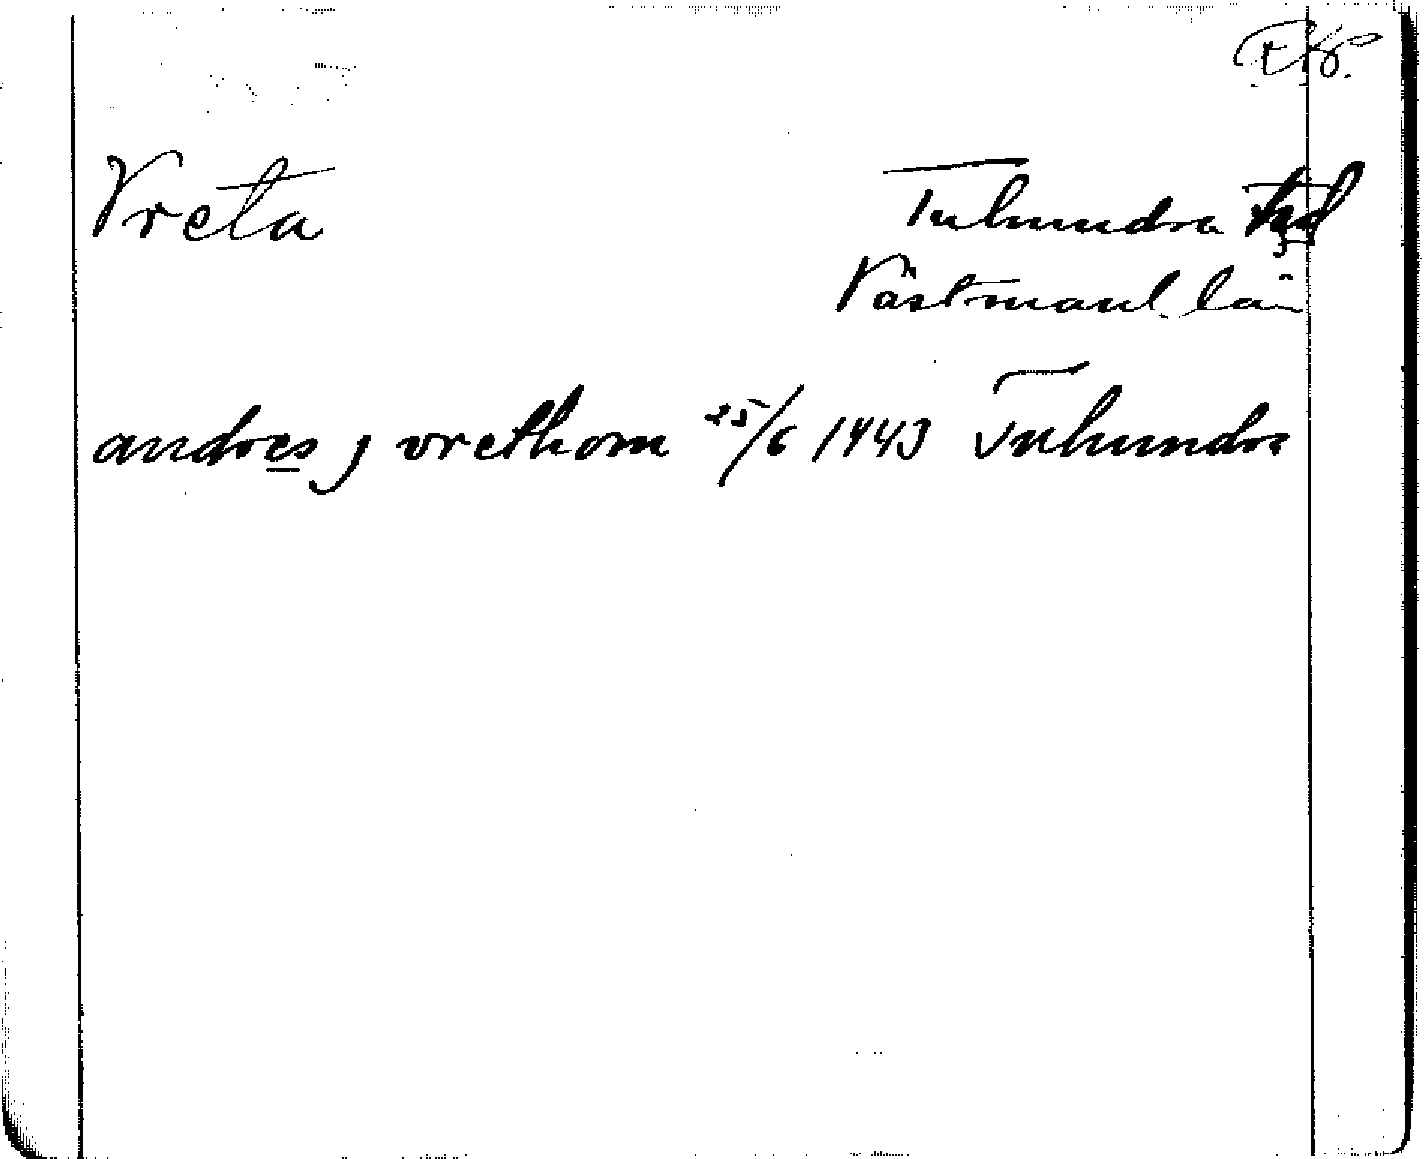 Vreta
Tuhundra hd
Västmanl. län
andres j vrethom 25/6 1443 Tuhundra